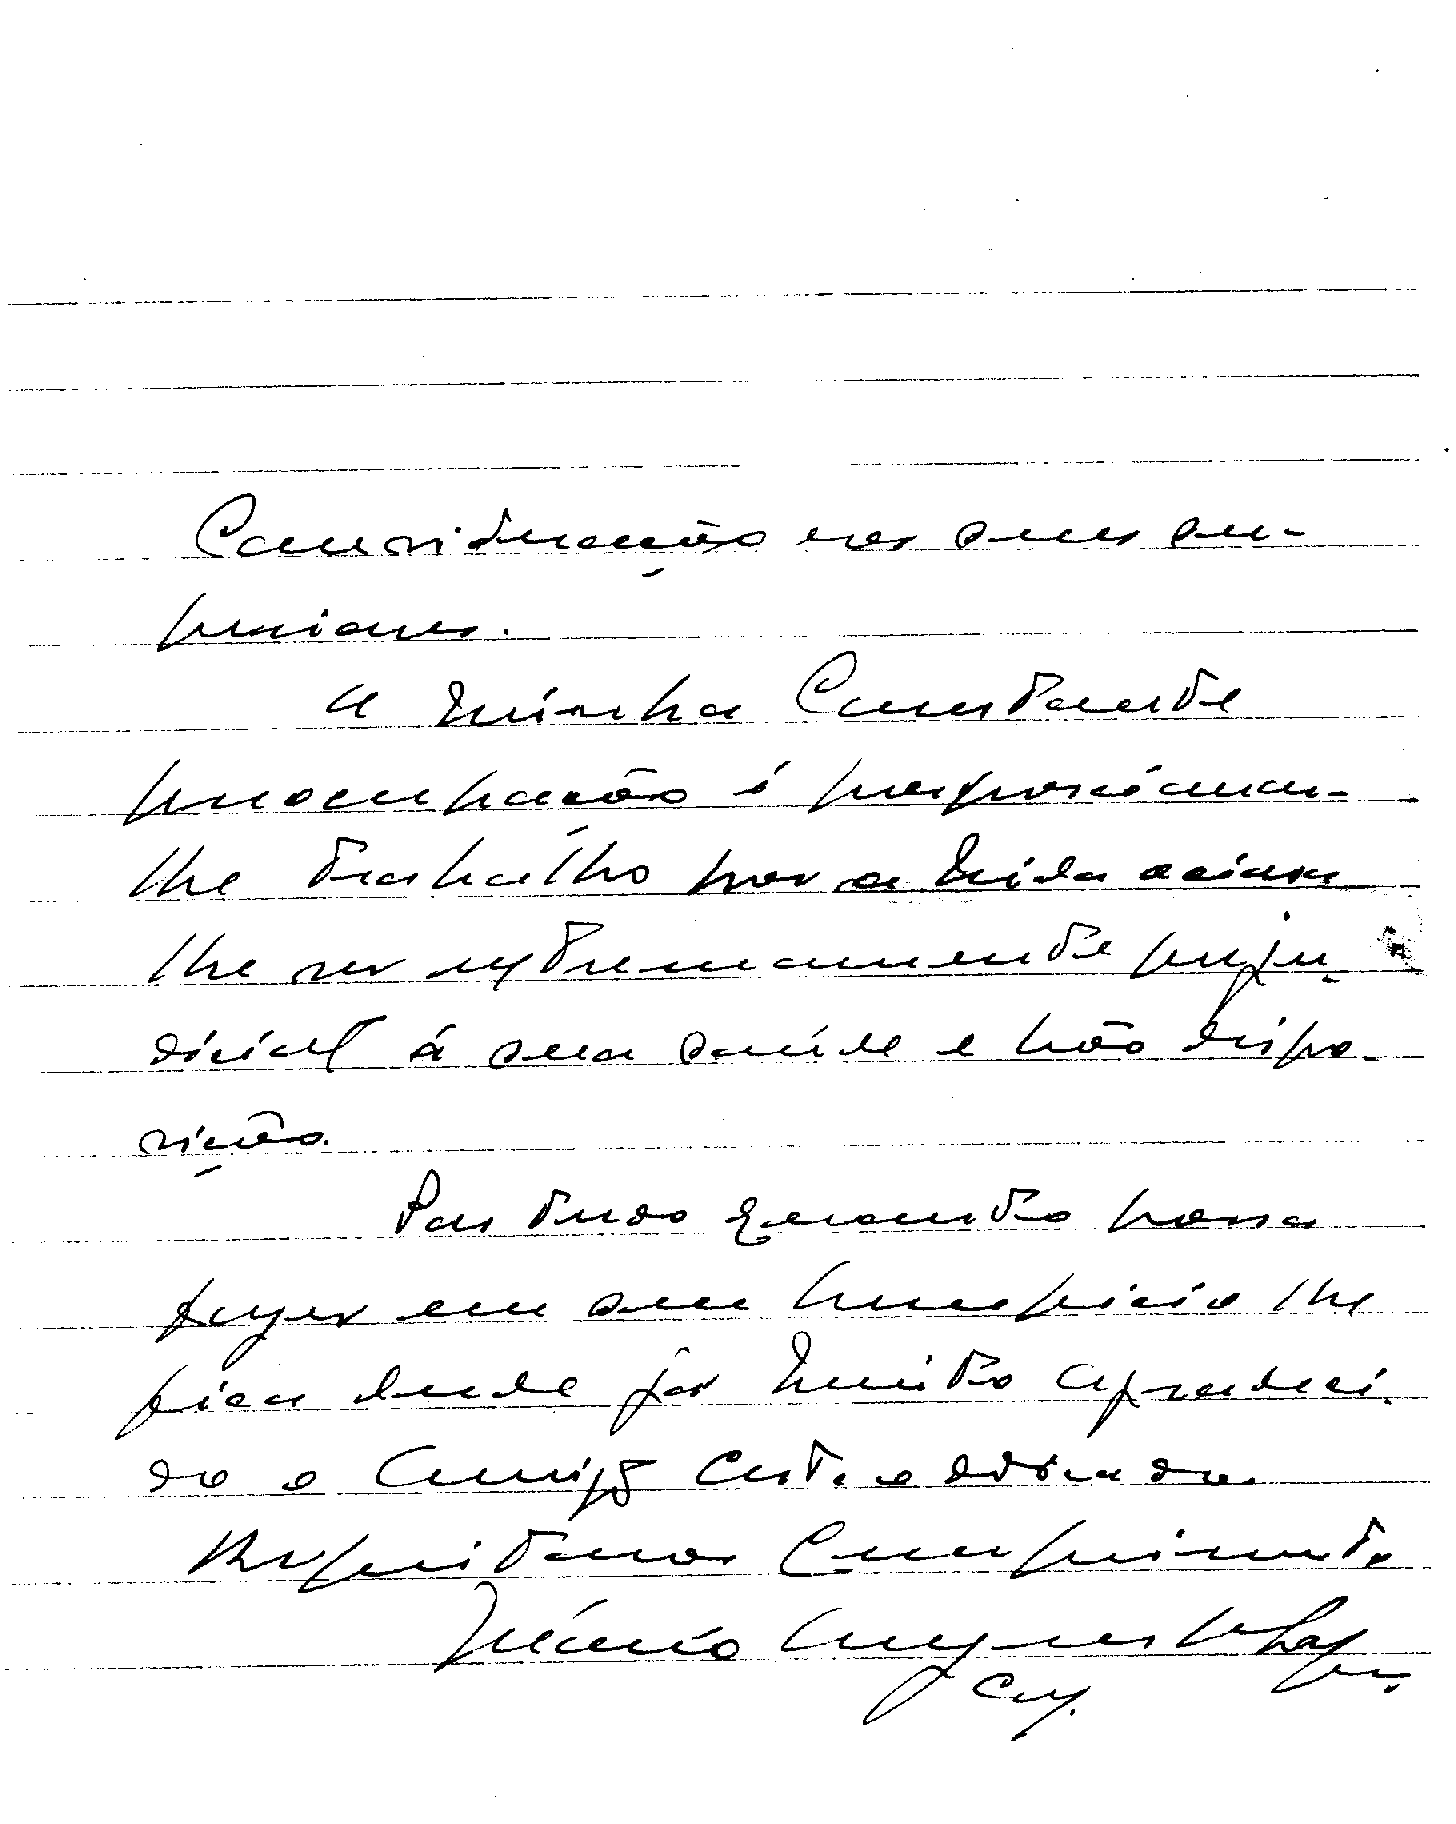 Consideração nos seus su-
periores.
A minha Constante
preocupação é proporcionar-
lhe trabalho por a vida ociosa
lhe ser extremamente preju-
dicial á sua saúde e não dispo-
sição.
Por tudo quanto possa
fazer em seu beneficio lhe
fica desde já muito agradeci-
do o Amigo Cert. e obrigado.
Respeitosos Cumprimentos
Augusto